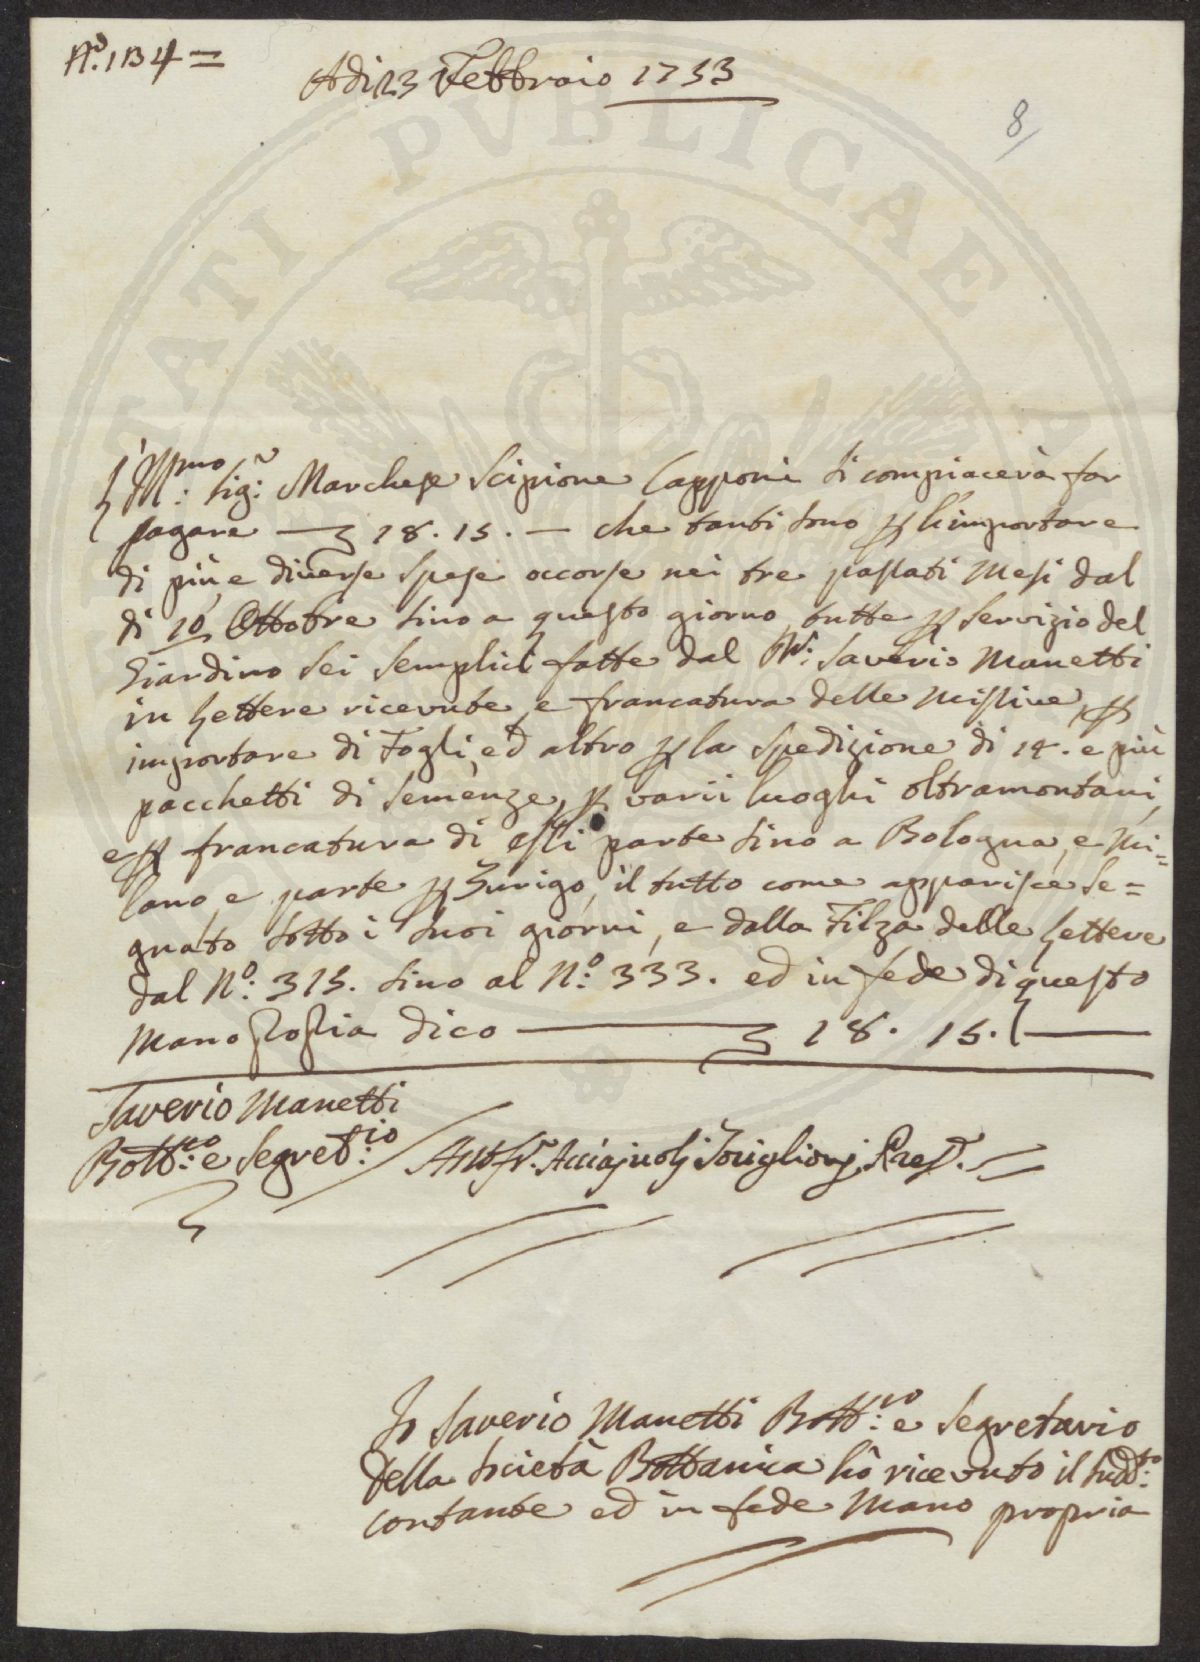 N.º 134 =
Adi 23 Febbraio 1753
8
L'Ill:mo Sig:r Marchese Scipione Capponi si compiacerà far
pagare — 18. 15. — che tanti sono p l'importare
di più, e diverse spese occorse nei tre passati Mesi dal
dì 10 Ottobre sino a questo giorno, tutte p servizio del
Giardino dei Semplici fatte dal Saverio Manetti
in Lettere ricevute, e francatura delle missive, p
importare di Fogli, ed altro p la spedizione di 14. e più
pacchetti di semenze, p varii luoghi oltramontani,
e p francatura di essi parte sino a Bologna, e Mi=
lano, e parte p Zurigo, il tutto come apparisce se=
gnato sotto i suoi giorni, e dalla Filza delle Lettere
dal N.º: 315. sino al N.º: 333. ed in fede di questo
mano propria dico — 18. 15. —
Saverio Manetti
Bott:co e Segret:io
Ant. Fr. Acciajuoli Toriglioni Pres.
Io Saverio Manetti Bott:co e Segretario
della Società Bottanica hò ricevuto il sudd:to
contante ed in fede Mano propria
PVBLICAE